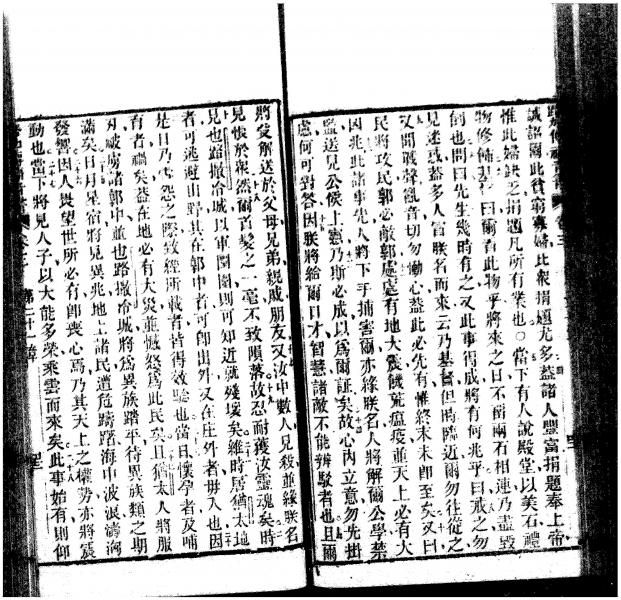 誠語爾此貧窮寡婦比衆捐題尤多蓋諸人豐富捐題奉上帝
惟此婦缺乏捐題凡所有業也○當下有人說殿堂以美石禮
物修飾基督曰爾看此物乎將來之日不留兩石相連乃盡毀
倒也問曰先生幾時有之又此事得成將有何兆乎曰戒之勿
見迷惑蓋多人冒朕名而來云乃基督但時臨近爾勿往從之
又聞戰聲亂音切勿慟心蓋此必先有惟終末未卽至矣又曰
民將攻民郭必敵郭處處有地大震饑荒瘟疫並天上必有大
因兆此諸事先人將下手捕害爾亦緣朕名人將解爾公學禁
監送見公侯上憲乃斯必成以爲爾証矣故心內立意勿先
慮何可對答因朕將給爾口才智慧諸敵不能辨駁者也且爾
將受解送於父母兄弟親戚朋友又汝中數人見殺並緣朕名
見恨於衆然爾首髮之一毫不致隕落故忍耐獲汝靈魂矣時
見也路撒冷城以軍圍困則可知近就殘壞矣維時居猶太地
者可逃避山野其在郭中者可卽出外又在庄外者毋入也因
是日乃雪怨之際致經所載者皆得效驗也當日懷孕者及哺
有者禍矣蓋在地必有大災並慽怒爲此民矣且猶太人將服
刃破虜諸郭中並也路撒冷城將爲異族踏平待異族類之期
滿矣日月星宿將見異兆地上諸民遭危躊躇海中波浪濤洶
發響因人畏望世所必有卽喪心焉乃其天上之權勢亦將震
動也當下將見人子以大能多榮乘雲而來矣此事始有則仰
第二十一章